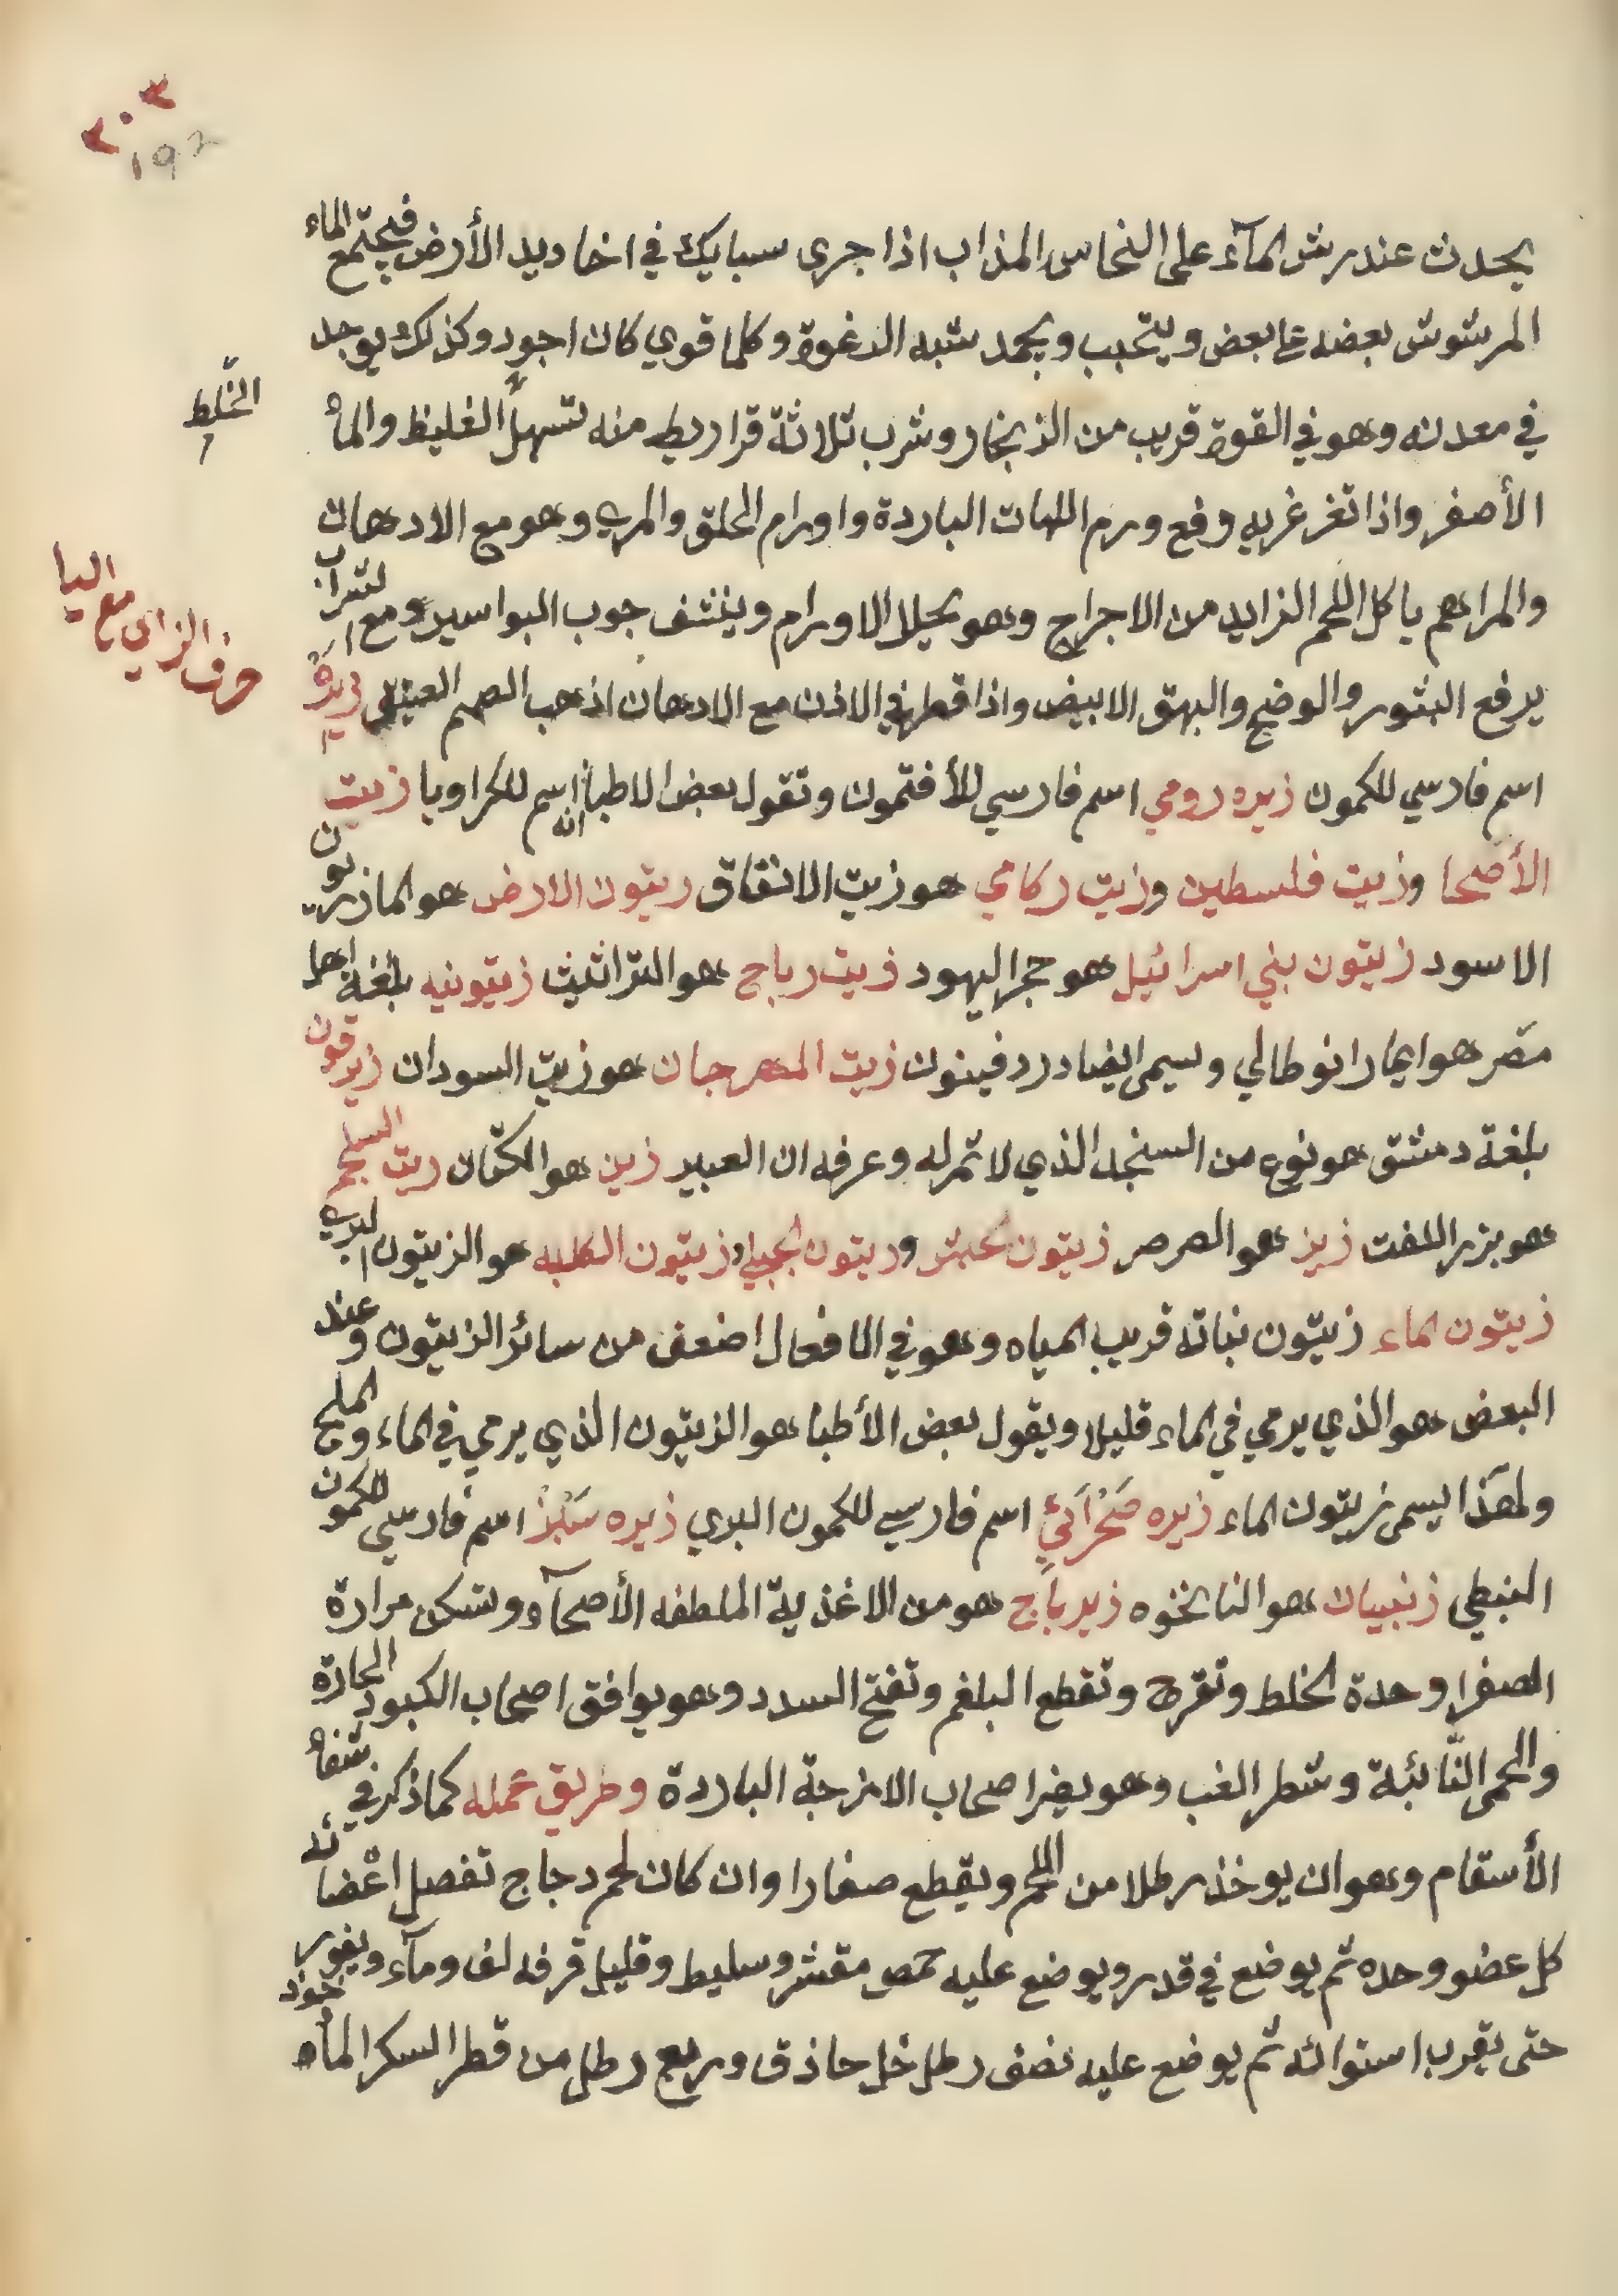 ٢٠٣
١٩٢
يحدث عند رش المآء على النحاس المذاب اذا جرى سبايك في اخاديد الأرض فيجتمع الماء
المرشوش بعضه على بعض ويتحبب ويجمد شبه الرغوة وكلما قوي كان اجود وكذلك يوجد
في معدنه وهو في القوة قريب من الزنجار وشرب ثلاثة قراريط منه تسهل الغليظ والمأ
الخلط
الأصفر واذا تغرغر به رفع ورم اللهات الباردة واورام الحلق والمرى وهو مع الادهان
والمراهم ياكل اللحم الزايد من الاجراح وهو يحلل الاورام وينشف جوب البواسير ومع الشراب
حرف الزاي مع اليا
يرفع البثور والوضح والبهق الابيض واذا قطر في الاذن مع الادهان اذهب الصمم العتيق زيره
اسم فارسي للكمون زيره رومي اسم فارسي للأفتمون وتقول بعض الاطبا انه اسم للكراويا زيت
الأصحا وزيت فلسطين وزيت ركامي هو زيت الانفاق زيتون الارض هو المازريون
الاسود زيتون بني اسرائيل هو حجر اليهود زيت رباح هو التراثيث زيتونيه بلغة اهل
مصر هو ايمارانوطالي ويسمى ايضا دردفينون زيت المهرجان هو زيت السودان زيرقون
بلغة دمشق هو نوع من السنجد الذي لا ثمر له وعرفه ان العبير زين هو الكتان زيت السلجم
هو بزر اللفت زيز هو الصرصر زيتون حبش وزيتون الجبل وزيتون الكلبه هو الزيتون البري
زيتون الماء زيتون نباته قريب المياه وهو في الافعال اضعف من سائر الزيتون وعند
البعض هو الذي يرمي في الماء قليلا ويقول بعض الأطبا هو الزيتون الذي يرمي في الماء والملح
ولهذا يسمى زيتون الماء زيره صَحْرَائي اسم فارسي للكمون البري زيره سَبْز اسم فارسي للكمون
النبطي زنبيان هو النانخوه زيرباج هو من الاغذية الملطفه الأصحآء وتسكن مرارة
الصفرا وحدة الخلط وتفرح وتقطع البلغم وتفتح السدد وهو يوافق اصحاب الكبود الحارة
والحمى النّائبة وشطر الغب وهو يضر اصحاب الامزجة الباردة وطريق عمله كما ذكر في شفأ
الأسقام وهو ان يوخذ رطلا من اللحم ويقطع صغارا وان كان لحم دجاج تفصل اعْضائه
كل عضو وحده ثم يوضع في قدر ويوضع عليه حمص مقشر وسليط وقليل قرفه لف ومآء ويفور
حتى يقرب استوائه ثم يوضع عليه نصف رطل خل حاذق وربع رطل من قطر السكر المأخوذ